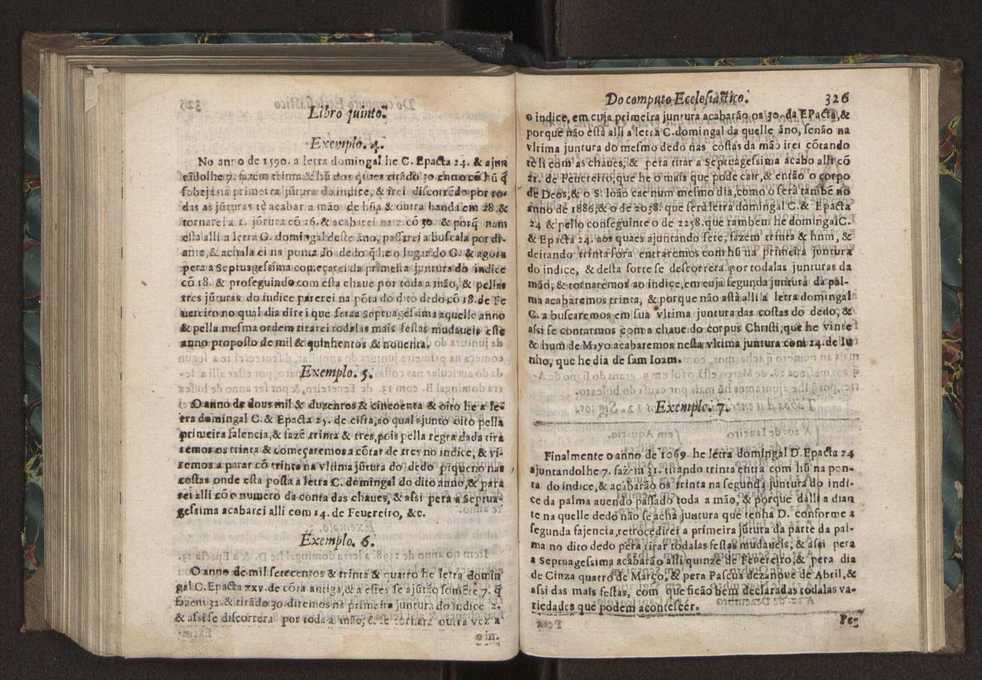 Libro quinto.
Exemplo. 4.
No anno de 1590. a letra domingal he G. Epacta 24. & ajun
tãdolhe 7. fazem trinta & hũ dos q̃ues tirãdo 30 entro cõ hũ q̃
sobeja na primeira jũtura do indice, & irei discorrẽdo por to
das as jũturas tè acabar a mão de hũa & outra banda em 28. &
tornarei a 1. jũtura cõ 26. & acabarei na 2. cõ 30. & porq̃ nam
està alli a letra G. domingal deste ãno, passarei a buscala por di-
ante, & achala ei na ponta do dedo q̃ he o lugar do G. & agora
pera a Septuagesima começarei da primeira juntura do indice
cõ 18. & proseguindo com esta chaue por toda a mão, & pellas
tres jũturas do indice pararei na põta do dito dedo cõ 18. de Fe
uereiro no qual dia direi que seraa Septuagesima aquelle anno
& pella mesma ordem tirarei todalas mais festas mudaueis este
anno proposto de mil & quinhentos & nouenta.
Exemplo. 5.
O anno de dous mil & duzentos & cincoenta & oito he a le-
tra domingal C. & Epacta 25. de cifra, ao qual ajunto oito pella
primeira falencia, & fazẽ trinta & tres, pois pella regra dada tira
remos os trinta & começaremos a cõtar de tres no indice, & vi-
remos a parar cõ trinta na vltima jũtura do dedo piqueno nas
costas onde esta posta a letra C. domingal do dito anno, & para
rei alli cõ o numero da conta das chaues, & assi pera a Septua-
gesima acabarei alli com 14. de Feuereiro, &c.
Exemplo. 6.
O anno de mil setecentos & trinta & quatro he letra domin
gal C. Epacta xxv. de cõta antiga, & a estes se ajũtão somẽte 7. q̃
fazem 32 & tirãdo 30 diremos na primeira juntura do indice 2.
& assi se discorrera por toda a mão, & se tornara outra vez a
o in-
Do computo Ecclesiastico. 326
o indice, em cuja primeira juntura acabarão os 30. da Epacta, &
porque não està alli a letra C. domingal da quelle ãno, senão na
vltima juntura do mesmo dedo nas costas da mão irei cõtando
tè li com as chaues, & pera tirar a Septuagesima acabo alli cõ
21. de Feuereiro, que he o mais que pode cair, & então o corpo
de Deos, & o S. Ioão cae num mesmo dia, como o serà tambẽ no
anno de 1886, & o de 2038. que serà letra domingal C. & Epacta
24 & pello conseguinte o de 2258. que tambem he domingal C.
& Epacta 24. aos quaes ajuntando sete, fazem trinta & hum, &
deitando trinta fora entraremos com hũ na primeira juntura
do indice, & desta sorte se descorrera por todalas junturas da
mão, & tornaremos ao indice, em cuja segunda juntura da pal-
ma acabaremos trinta, & porque não està alli a letra domingal
C. a buscaremos em sua vltima juntura das costas do dedo, &
assi se contarmos com a chaue do corpus Christi, que he vinte
& hum de Mayo acabaremos nesta vltima juntura com 24. de Iu
nho, que he dia de sam Ioam.
Exemplo. 7.
Finalmente o anno de 1069. he letra domingal D. Epacta 24
ajuntandolhe 7. fazẽm 31. tirando trinta entra com hũ na pon-
ta do indice, & acabarão os trinta na segunda juntura do indi-
ce da palma auendo passado toda a mão, & porque dalli a dian
te na quelle dedo não se acha juntura que tenha D. conforme a
segunda fajencia, retrocedirei a primeira jũtura da parte da pal-
ma no dito dedo pera tirar todalas festas mudaueis, & assi pera
a Septuagesima acabarão alli quinze de Feuereiro, & pera dia
de Cinza quatro de Março, & pera Pascua dezanoue de Abril, &
assi das mais festas, com que ficão bem declaradas todalas va-
riedades que podem acontescer.
Pe-